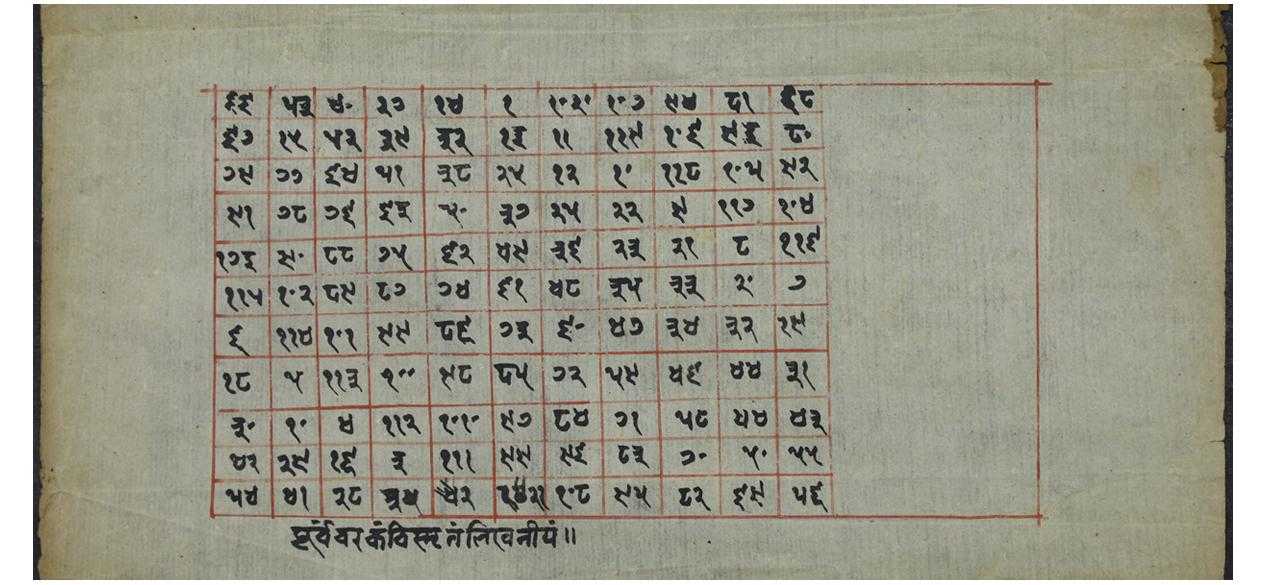 ६६ ५३ ४० २७ १४ १ १०२० १०७ ९४ ८१ ६८
६७ १५ ५२ ३९ ३२ १३ ११ ११९ १०६ ९३ ८०
७९ ७७ ६४ ५१ ३८ २५ १२ १० ११८ १०५ ९२
९१ ७८ ७६ ६३ ५० ३७ २५ २२ ९ ११७ १०४
१७३ ९० ८८ ७५ ६२ ४९ ३६ २३ २१ ८ ११६
११५ १०२ ८९ ८७ ७४ ६१ ४८ ३५ ३३ २० ७
६ ११४ १०१ ९९ ८६ ७३ ६० ४७ ३४ ३२ १९
१८ ५ ११३ १०० ९८ ८५ ७२ ५९ ४६ ४४ ३१
३० १० ४ ११२ १०१० ९७ ८४ ७१ ५८ ४४ ४३
४२ २९ १६ ३ १११ ९९ ९६ ८३ ७० ५० ५५
५४ ४१ २८ १०८ ९५ ८२ ६९ ५६
लिखनीयं॥